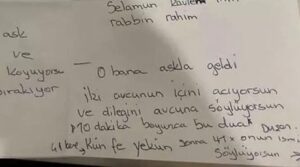 Selamun kavlem
rabbin rahim
ask
ve
koyuyorsu
bırakıyor
— O bana askla geldi
İki avcunun içini acıyorsun
ve dileğini avcuna söylüyorsun
10 dakika boyunca bu dua
41 kere, Kün fe yekün sonra 41x onun ism
Söylüyorsun